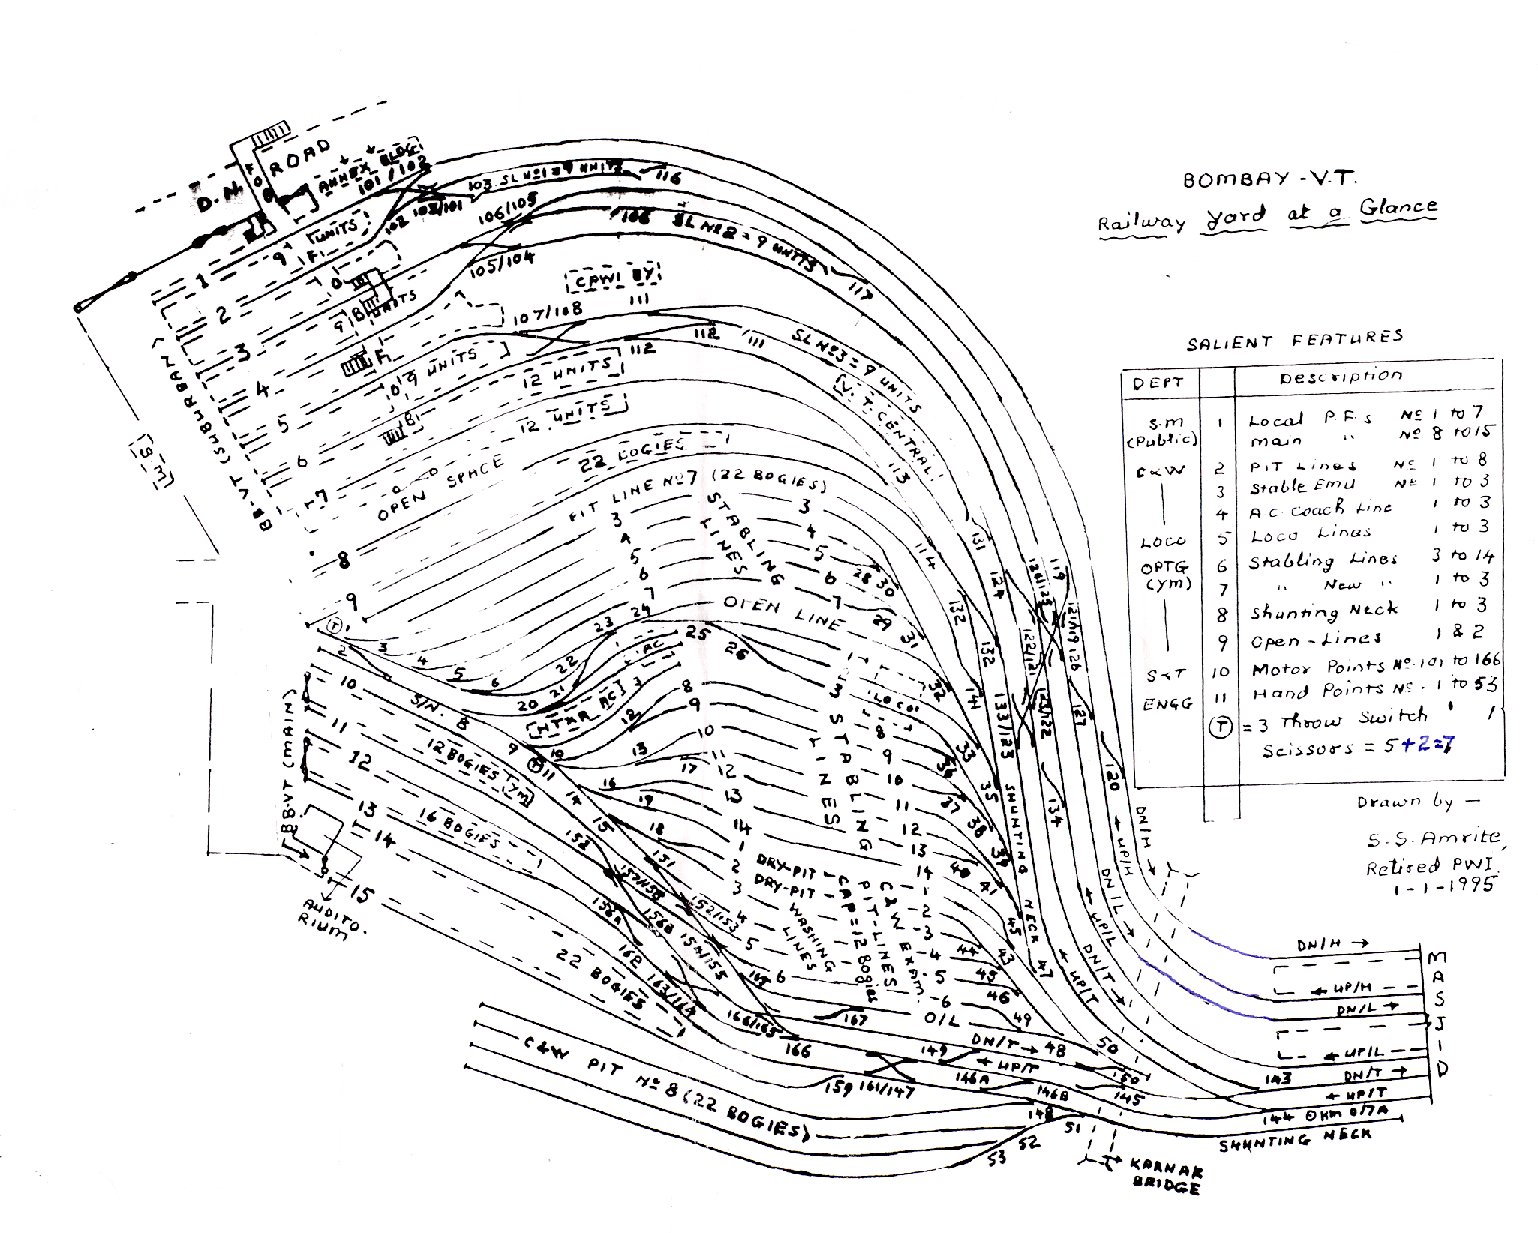 BOMBAY - V.T.
Railway Yard at a Glance
SALIENT FEATURES
DEPT Description
S.M (Public) 1 Local P.F.s No 1 to 7
main " No 8 to 15
C&W 2 PIT Lines No 1 to 8
3 Stable Emd No 1 to 3
4 A.C. Coach Line 1 to 3
LOCO 5 Loco Lines 1 to 3
OPTG (YM) 6 Stabling Lines 3 to 14
7 " New " 1 to 3
8 Shunting Neck 1 to 3
9 Open-Lines 1 & 2
S&T 10 Motor Points No. 101 to 166
ENGG 11 Hand Points No. 1 to 53
(T) = 3 Throw Switch 1
Scissors = 5+2=7
Drawn by -
S.S. Amrite,
Retired PWI
1-1-1995
D.N. ROAD
ANNEX BLDG
101/102
103 SL No 1 = 9 UNITS
116
102
103/101
106/105
106
SL No 2 = 9 UNITS
117
105/104
9 UNITS
1
2
3
4
5
6
7
8
9
BB-VT (SUBURBAN)
S.M
CPWI BY
107/108
111
112
SL No 3 = 9 UNITS
V.T. CENTRAL
113
9 UNITS
12 UNITS
12 UNITS
22 BOGIES
OPEN SPACE
PIT LINE No 7 (22 BOGIES)
STABLING LINES
OPEN LINE
3
4
5
6
7
28
30
29
31
32
114
131
132
124
119
127
141
133/123
120
134
SHUNTING NECK
(T)
2
3
4
5
6
20
21
22
23
24
25
26
AC
10
11
12
13
14
15
S/N. 8
12 BOGIES YM
16 BOGIES
22 BOGIES
BB-VT (MAIN)
AUDITO-
RIUM
3 STABLING LINES
LOCO
8
9
10
11
12
13
14
1
2
3
DRY-PIT
DRY-PIT - CAP = 12 Bogies
WASHING LINES
PIT-LINES
C&W EXAM.
4
5
6
O/L
33
35
37
38
39
40
41
43
44
45
46
47
48
49
50
151
152/153
154/155
156A
156B
162
163/164
166/165
166
167
149
159
161/147
146A
146B
148
145
51
52
53
C&W PIT No 8 (22 BOGIES)
DN/T
UP/T
DN/H
UP/H
DN/L
UP/L
DN/T
UP/T
DN/H
UP/H
DN/L
UP/L
143 DN/T
UP/T
144 0km 0/7A
SHUNTING NECK
MASJID
KARNAK
BRIDGE